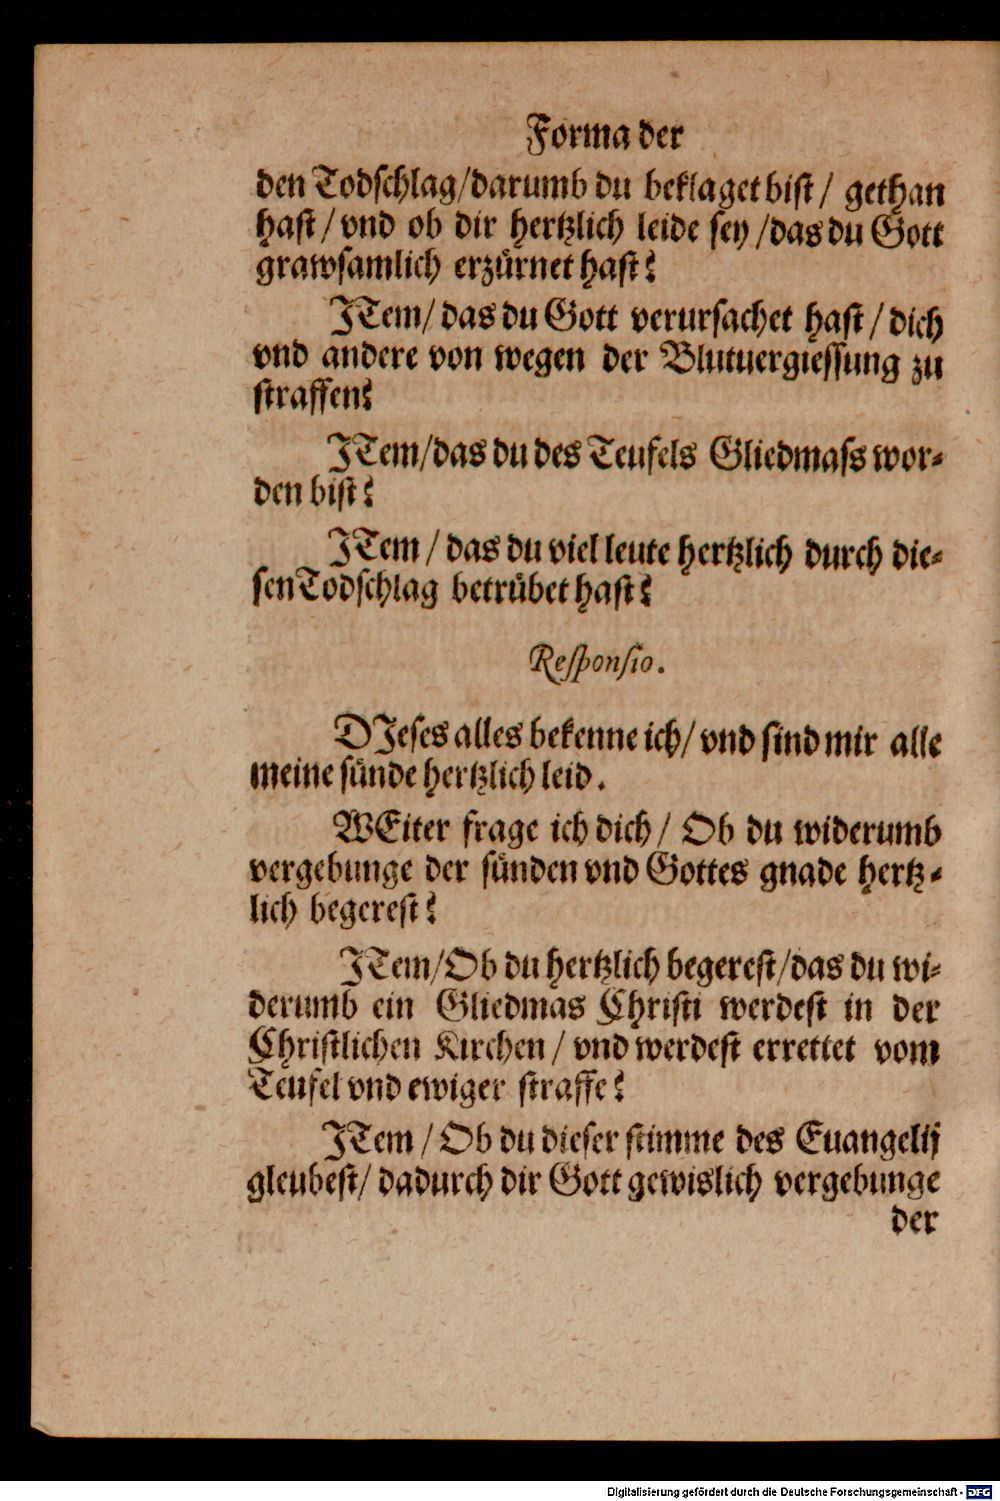 Forma der
den Todschlag/darumb du beklaget bist/ gethan
hast/ vnd ob dir hertzlich leide sey/das du Gott
grawsamlich erzürnet hast?
JTem/ das du Gott verursachet hast/ dich
vnd andere von wegen der Blutuergiessung zu
straffen?
JTem/das du des Teufels Gliedmass wor-
den bist?
JTem/ das du viel leute hertzlich durch die-
sen Todschlag betrübet hast?
Responsio.
DJeses alles bekenne ich/ vnd sind mir alle
meine sünde hertzlich leid.
WEiter frage ich dich/ Ob du widerumb
vergebunge der sünden vnd Gottes gnade hertz-
lich begerest?
JTem/Ob du hertzlich begerest/das du wi-
derumb ein Gliedmas Christi werdest in der
Christlichen Kirchen/ vnd werdest errettet vom
Teufel vnd ewiger straffe?
JTem/Ob du dieser stimme des Euangelij
gleubest/ dadurch dir Gott gewislich vergebunge
der
Digitalisierung gefördert durch die Deutsche Forschungsgemeinschaft - DFG